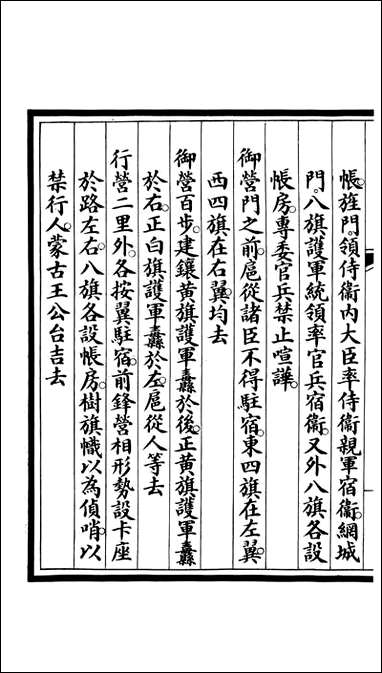 帳。旌門。領侍衞內大臣率侍衞親軍宿衞。網城
門。八旗護軍統領率官兵宿衞。又外八旗各設
帳房。專委官兵禁止喧譁。
御營門之前。扈從諸臣不得駐宿。東四旗在左翼。
西四旗在右翼。均去
御營百步。建鑲黃旗護軍纛於後。正黃旗護軍纛
於右。正白旗護軍纛於左。扈從人等去
行營二里外。各按翼駐宿。前鋒營相形勢設卡座
於路左右。八旗各設帳房。樹旗幟以為偵哨。以
禁行人。蒙古王公台吉去